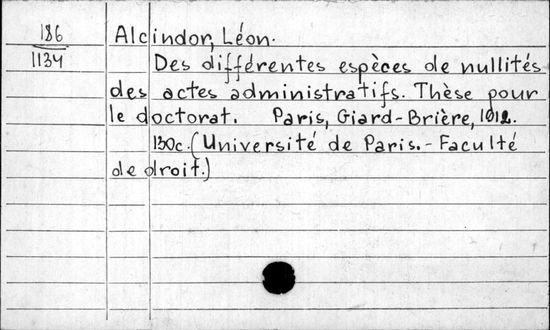 186
1134
Alcindor, Léon.
Des différentes espèces de nullités
des actes administratifs. Thèse pour
le doctorat. Paris, Giard-Brière, 1912.
130c. (Université de Paris.-Faculté
de droit.)